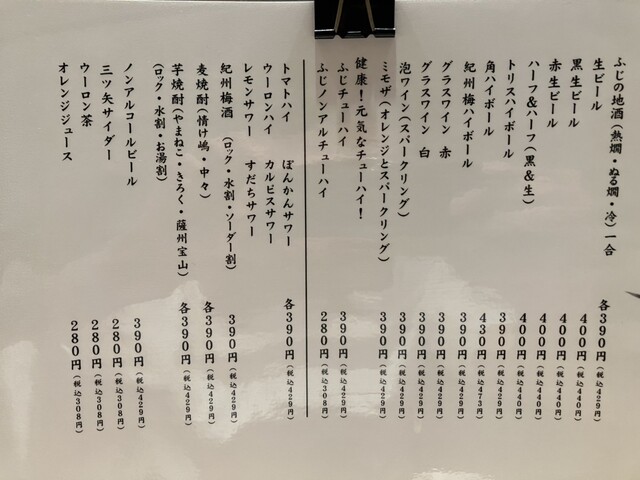 ふじの地酒(熱燗・ぬる燗・冷)一合 各390円(税込429円)
生ビール 400円(税込440円)
黒生ビール 400円(税込440円)
赤生ビール 400円(税込440円)
ハーフ&ハーフ(黒&生) 400円(税込440円)
トリスハイボール 390円(税込429円)
角ハイボール 430円(税込473円)
紀州梅ハイボール 390円(税込429円)
グラスワイン 赤 390円(税込429円)
グラスワイン 白 390円(税込429円)
泡ワイン(スパークリング) 390円(税込429円)
ミモザ(オレンジとスパークリング) 390円(税込429円)
健康!元気なチューハイ!
ふじチューハイ 390円(税込429円)
ふじノンアルチューハイ 280円(税込308円)
トマトハイ ぽんかんサワー 各390円(税込429円)
ウーロンハイ カルピスサワー
レモンサワー すだちサワー
紀州梅酒 (ロック・水割・ソーダー割) 390円(税込429円)
麦焼酎(情け嶋・中々) 各390円(税込429円)
芋焼酎(やまねこ・きろく・薩州宝山) 各390円(税込429円)
(ロック・水割・お湯割)
ノンアルコールビール 390円(税込429円)
三ツ矢サイダー 280円(税込308円)
ウーロン茶 280円(税込308円)
オレンジジュース 280円(税込308円)